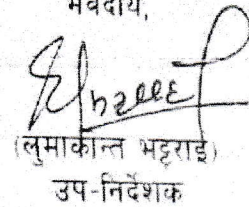 भवदीय,
(लुमाकान्त भट्टराई)
उप-निर्देशक